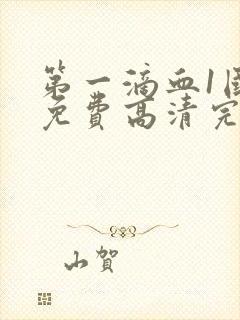 第一滴血1国
免费高清完
山贺